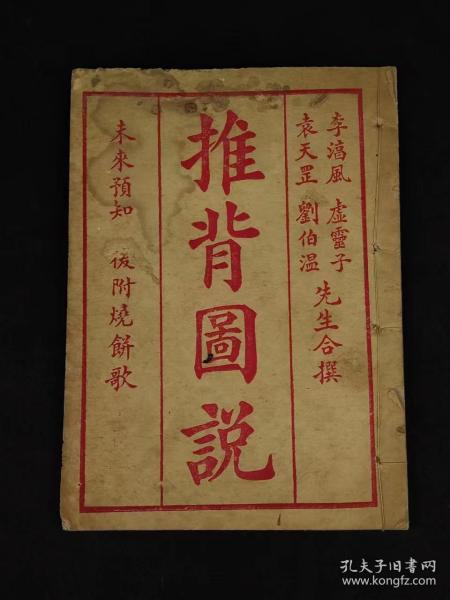 李淳風 虛靈子
袁天罡 劉伯溫
先生合撰
推背圖說
未來預知 後附燒餅歌
孔夫子旧书网
www.kongfz.com